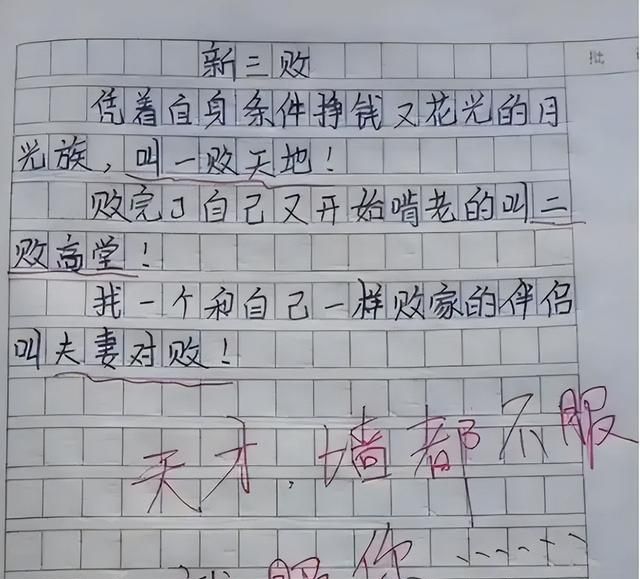 批
新三败
凭着自身条件挣钱又花光的月
光族，叫一败天地！
败完了自己又开始啃老的叫二
败高堂！
找一个和自己一样败家的伴侣
叫夫妻对败！
天才，墙都不服
服你……